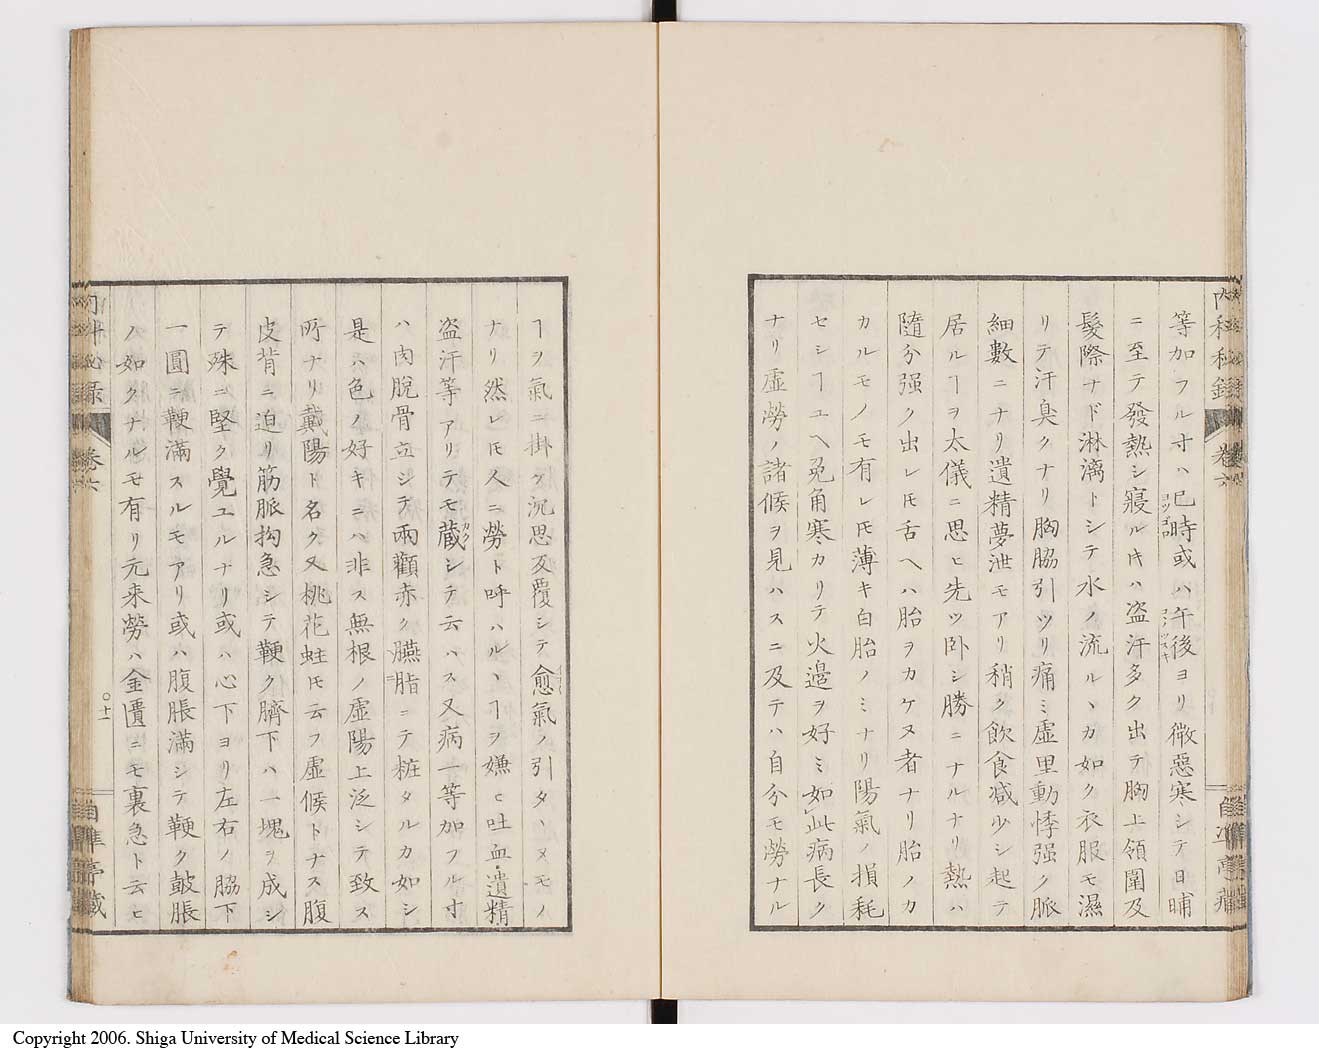 内科秘録 卷六
等加フル寸ハ巳時或ハ午後ヨリ微惡寒シテ日晡
ニ至テ發熱シ寢ル𪜈ハ盗汗多ク出テ胸上領圍及
髮際ナド淋漓トシテ水ノ流ルヽカ如ク衣服モ濕
リテ汗臭クナリ胸脇引ツリ痛ミ虚里動悸强ク脈
細數ニナリ遺精夢泄モアリ稍ク飲食减少シ起テ
居ルヿヲ太儀ニ思ヒ先ツ卧シ勝ニナルナリ熱ハ
隨分强ク出レ𪜈舌ヘハ胎ヲカケヌ者ナリ胎ノカ
カルモノモ有レ𪜈薄キ白胎ノミナリ陽氣ノ損耗
セシヿユヘ兎角寒カリテ火邉ヲ好ミ如此病長ク
ナリ虚勞ノ諸候ヲ見ハスニ及テハ自分モ勞ナル
ヿヲ氣ニ掛ケ沉思反覆シテ愈氣ノ引タヽヌモノ
ナリ然レ𪜈人ニ勞ト呼ハルヽヿヲ嫌ヒ吐血遺精
盗汗等アリテモ蔵シテ云ハス又病一等加フル寸
ハ肉脫骨立シテ兩顴赤ク臙脂ニテ粧タルカ如シ
是ハ色ノ好キニハ非ス無根ノ虚陽上泛シテ致ス
所ナリ戴陽ト名ク又桃花蛀𪜈云フ虚候トナス腹
皮背ニ迫リ筋脈拘急シテ鞕ク臍下ハ一塊ヲ成シ
テ殊ニ堅ク覺ユルナリ或ハ心下ヨリ左右ノ脇下
一圓ニ鞕滿スルモアリ或ハ腹脹滿シテ鞕ク皷脹
ノ如クナルモ有リ元来勞ハ金匱ニモ裏急ト云ヒ
内科秘録 卷六 〇十一
Copyright 2006. Shiga University of Medical Science Library